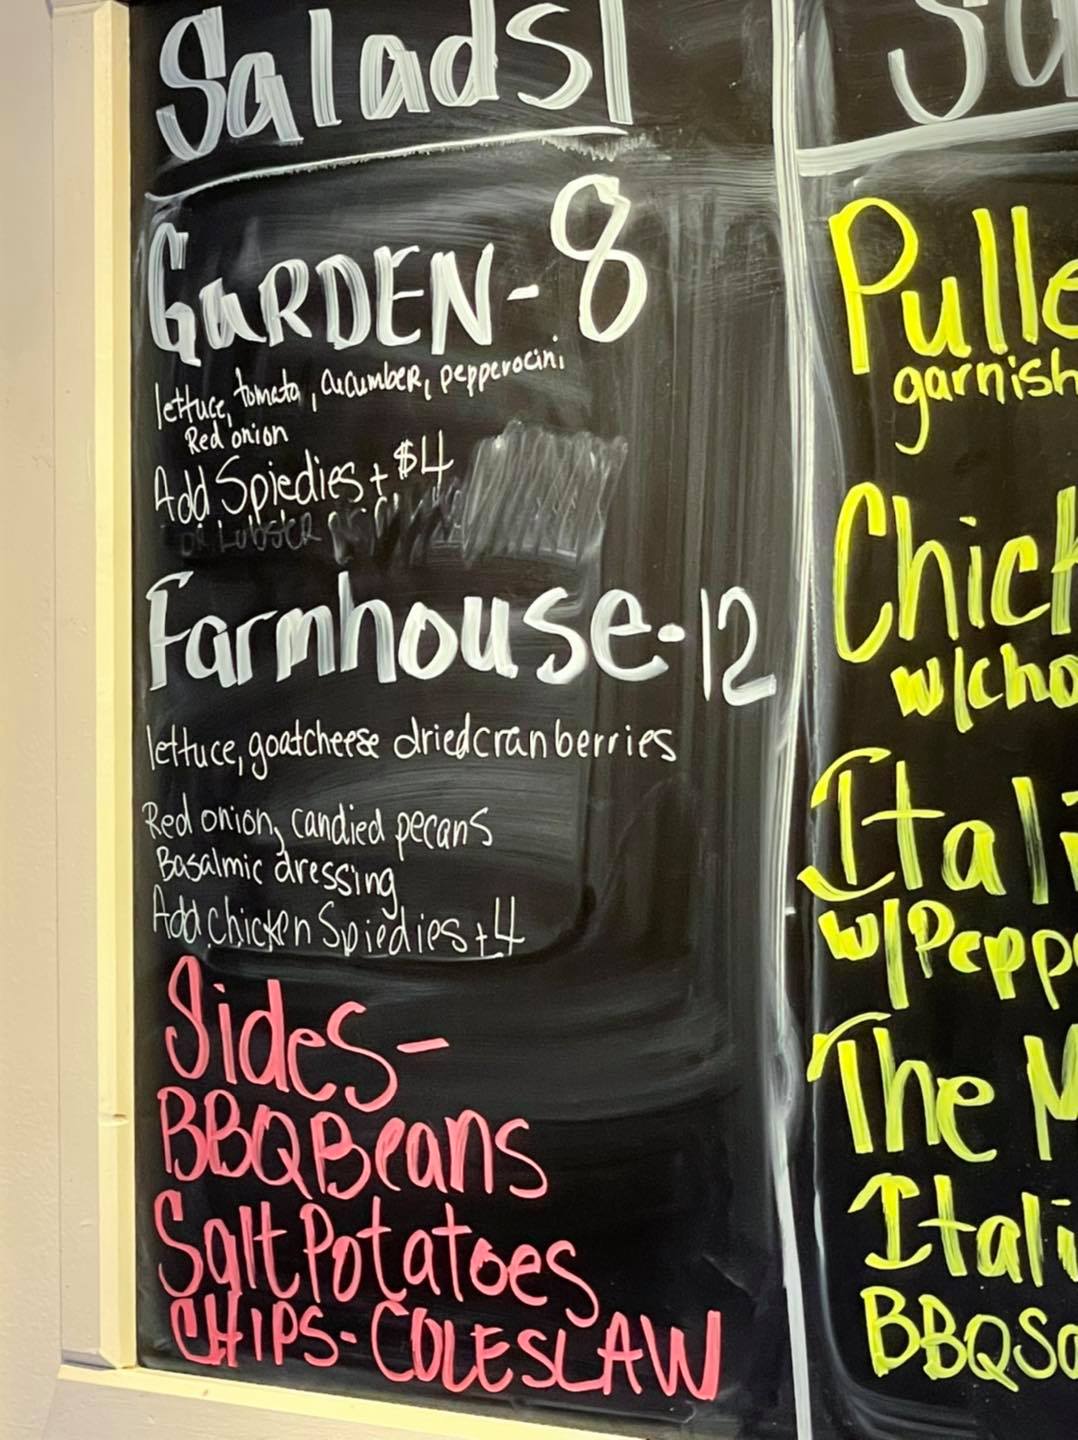 Salads
GARDEN - 8
lettuce, tomato, cucumber, pepperocini
Red onion
Add Spiedies + $4
or Lobster
Farmhouse - 12
lettuce, goatcheese driedcranberries
Red onion, candied pecans
Basalmic dressing
Add Chicken Spiedies + 4
Sides -
BBQ Beans
Salt Potatoes
CHIPS - COLESLAW
Sa
Pulle
garnish
Chick
w/cho
Itali
w/Pepp
The M
Itali
BBQ Sa